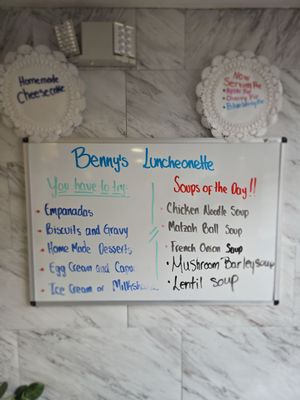 Homemade
Cheesecake
Now
Serving
• Apple Pie
• Cherry Pie
• Blueberry Pie
Benny's Luncheonette
You have to try:
• Empanadas
• Biscuits and Gravy
• Home Made Desserts
• Egg Cream and Cano
• Ice Cream or Milkshake
Soups of the Day!!
• Chicken Noodle Soup
• Matzah Ball Soup
• French Onion Soup
• Mushroom Barley soup
• Lentil soup